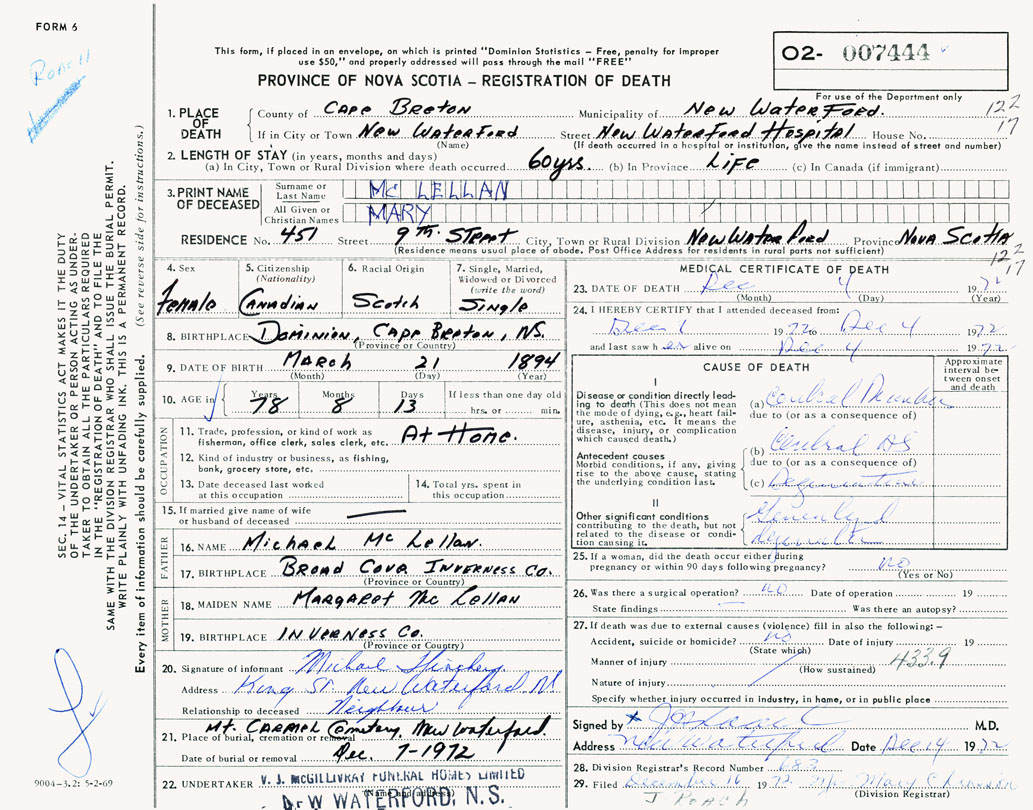 FORM 6
Roach
This form, if placed in an envelope, on which is printed "Dominion Statistics – Free, penalty for improper
use $50," and properly addressed will pass through the mail "FREE"
PROVINCE OF NOVA SCOTIA – REGISTRATION OF DEATH
O2- 007444
For use of the Department only
122
17
1. PLACE OF DEATH
County of Cape Breton Municipality of New Waterford.
If in City or Town New Waterford Street New Waterford Hospital House No.
(Name) (If death occurred in a hospital or institution, give the name instead of street and number)
2. LENGTH OF STAY (in years, months and days)
(a) In City, Town or Rural Division where death occurred 60 yrs. (b) In Province Life (c) In Canada (if immigrant)
3. PRINT NAME OF DECEASED
Surname or Last Name Mc LELLAN
All Given or Christian Names MARY
RESIDENCE No. 451 Street 9th. Street City, Town or Rural Division New Waterford Province Nova Scotia
(Residence means usual place of abode. Post Office Address for residents in rural parts not sufficient)
122
17
4. Sex Female
5. Citizenship (Nationality) Canadian
6. Racial Origin Scotch
7. Single, Married, Widowed or Divorced (write the word) Single
8. BIRTHPLACE Dominion, Cape Breton, NS.
(Province or Country)
9. DATE OF BIRTH March 21 1894
(Month) (Day) (Year)
10. AGE in Years 78 Months 8 Days 13 If less than one day old hrs. or min.
OCCUPATION
11. Trade, profession, or kind of work as fisherman, office clerk, sales clerk, etc. At Home.
12. Kind of industry or business, as fishing, bank, grocery store, etc.
13. Date deceased last worked at this occupation
14. Total yrs. spent in this occupation
15. If married give name of wife or husband of deceased
FATHER
16. NAME Michael Mc Lellan.
17. BIRTHPLACE Broad Cove Inverness Co.
(Province or Country)
MOTHER
18. MAIDEN NAME Margaret Mc Lellan
19. BIRTHPLACE Inverness Co.
(Province or Country)
20. Signature of informant Michael
Address King St. New Waterford
Relationship to deceased Neighbour
21. Place of burial, cremation or removal Mt. Carmel Cemetary, New Waterford.
Date of burial or removal Dec. 7-1972
22. UNDERTAKER V. J. McGILLIVRAY FUNERAL HOMES LIMITED
(Name and address)
NEW WATERFORD, N.S.
MEDICAL CERTIFICATE OF DEATH
23. DATE OF DEATH Dec 4 1972
(Month) (Day) (Year)
24. I HEREBY CERTIFY that I attended deceased from:
Dec 1 1972 to Dec 4 1972
and last saw her alive on Dec 4 1972
CAUSE OF DEATH
Approximate interval between onset and death
I
Disease or condition directly leading to death (This does not mean the mode of dying, e.g., heart failure, asthenia, etc. It means the disease, injury, or complication which caused death.)
(a) Cerebral
due to (or as a consequence of)
Antecedent causes
Morbid conditions, if any, giving rise to the above cause, stating the underlying condition last.
(b) Cerebral AS
due to (or as a consequence of)
(c)
II
Other significant conditions
contributing to the death, but not related to the disease or condition causing it.
25. If a woman, did the death occur either during pregnancy or within 90 days following pregnancy? no
(Yes or No)
26. Was there a surgical operation? no Date of operation 19
State findings Was there an autopsy?
27. If death was due to external causes (violence) fill in also the following:–
Accident, suicide or homicide? no Date of injury 19
(State which)
Manner of injury 433.9
(How sustained)
Nature of injury
Specify whether injury occurred in industry, in home, or in public place
Signed by M.D.
Address New Waterford Date Dec 14 1972
28. Division Registrar's Record Number 683
29. Filed December 16 1972 Mary
(Division Registrar)
J Roach
SEC. 14 – VITAL STATISTICS ACT MAKES IT THE DUTY
OF THE UNDERTAKER OR PERSON ACTING AS UNDERTAKER
TO OBTAIN ALL THE PARTICULARS REQUIRED
IN THE "REGISTRATION OF DEATH" AND TO FILE THE
SAME WITH THE DIVISION REGISTRAR WHO SHALL ISSUE THE BURIAL PERMIT.
WRITE PLAINLY WITH UNFADING INK. THIS IS A PERMANENT RECORD.
Every item of information should be carefully supplied. (See reverse side for instructions.)
9004-3.2: 5-2-69